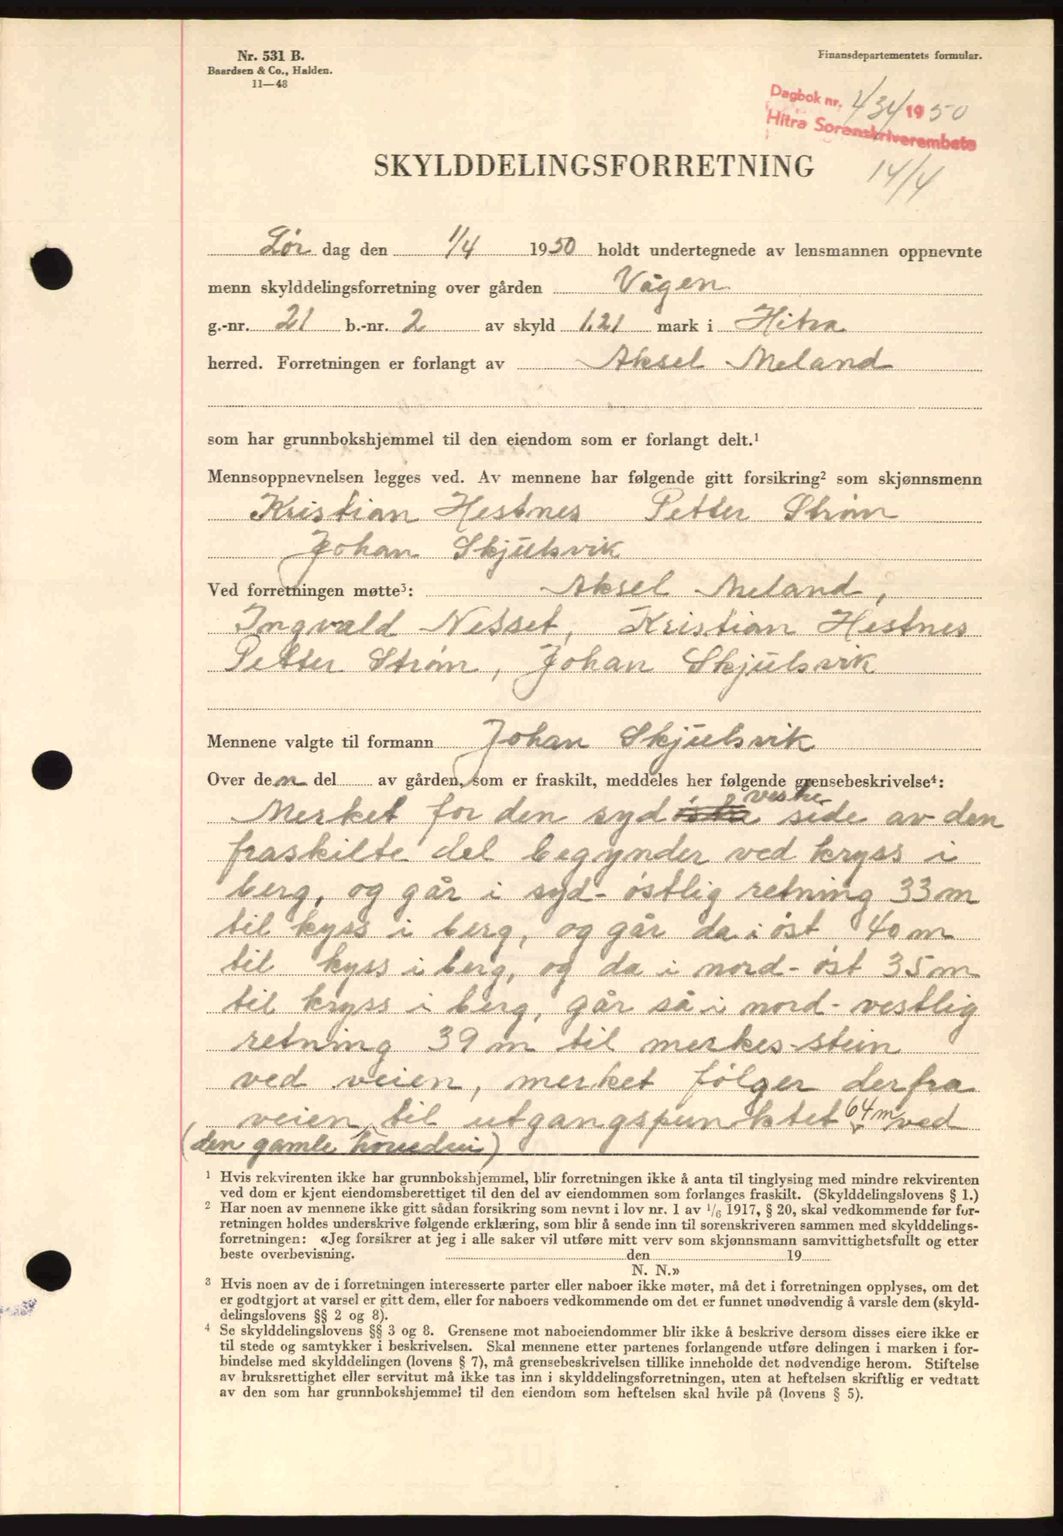 Nr. 531 B.
Baardsen & Co., Halden.
11—48
Finansdepartementets formular.
Dagbok nr. 434 1950
Hitra Sorenskriverembete
14/4
SKYLDDELINGSFORRETNING
Lør dag den 1/4 1950 holdt undertegnede av lensmannen oppnevnte
menn skylddelingsforretning over gården Vågen
g.-nr. 21 b.-nr. 2 av skyld 1.21 mark i Hitra
herred. Forretningen er forlangt av Aksel Meland
som har grunnbokshjemmel til den eiendom som er forlangt delt.¹
Mennsoppnevnelsen legges ved. Av mennene har følgende gitt forsikring² som skjønnsmenn
Kristian Hestnes Petter Strøm
Johan Skjulsvik
Ved forretningen møtte³: Aksel Meland,
Ingvald Nesset, Kristian Hestnes
Petter Strøm, Johan Skjulsvik
Mennene valgte til formann Johan Skjulsvik
Over den del av gården, som er fraskilt, meddeles her følgende grensebeskrivelse⁴:
Merket for den syd vestre side av den
fraskilte del begynder ved kryss i
berg, og går i syd-östlig retning 33 m
til kyss i berg, og går da i öst 40 m
til kyss i berg, og da i nord-öst 35 m
til kryss i berg, går så i nord-vestlig
retning 39 m til merkes-stein
ved veien, merket fölger derfra
veien til utgangspunktet 64 m ved
(den gamle hovedvei)
¹ Hvis rekvirenten ikke har grunnbokshjemmel, blir forretningen ikke å anta til tinglysing med mindre rekvirenten
ved dom er kjent eiendomsberettiget til den del av eiendommen som forlanges fraskilt. (Skylddelingslovens § 1.)
² Har noen av mennene ikke gitt sådan forsikring som nevnt i lov nr. 1 av 1/6 1917, § 20, skal vedkommende før for-
retningen holdes underskrive følgende erklæring, som blir å sende inn til sorenskriveren sammen med skylddelings-
forretningen: «Jeg forsikrer at jeg i alle saker vil utføre mitt verv som skjønnsmann samvittighetsfullt og etter
beste overbevisning. den 19
N. N.»
³ Hvis noen av de i forretningen interesserte parter eller naboer ikke møter, må det i forretningen opplyses, om det
er godtgjort at varsel er gitt dem, eller for naboers vedkommende om det er funnet unødvendig å varsle dem (skyld-
delingslovens §§ 2 og 8).
⁴ Se skylddelingslovens §§ 3 og 8. Grensene mot naboeiendommer blir ikke å beskrive dersom disses eiere ikke er
til stede og samtykker i beskrivelsen. Skal mennene etter partenes forlangende utføre delingen i marken i for-
bindelse med skylddelingen (lovens § 7), må grensebeskrivelsen tillike inneholde det nødvendige herom. Stiftelse
av bruksrettighet eller servitut må ikke tas inn i skylddelingsforretningen, uten at heftelsen skriftlig er vedtatt
av den som har grunnbokshjemmel til den eiendom som heftelsen skal hvile på (lovens § 5).